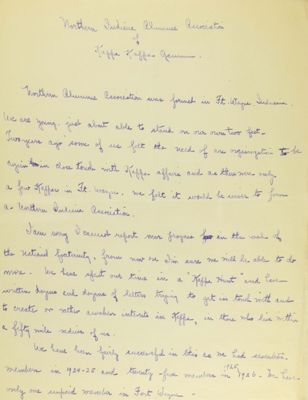 Northern Indiana Alumnae Association
of
Kappa Kappa Gamma.
Northern Alumnae Association was formed in Ft. Wayne Indiana.
We are young, just about able to stand on our own two feet.
Two years ago some of us felt the need of an organization to be
again in close touch with Kappa affairs and as there were only
a few Kappas in Ft. Wayne. We felt it would be wiser to form
a Northern Indiana Association.
I am sorry I cannot report more progress in the work of
the National fraternity, from now on I'm sure we will be able to do
more. We have spent our time in a "Kappa Hunt" and have
written dozens and dozens of letters trying to get in touch with and
to create or rather awaken interest in Kappa, in those who live within
a fifty mile radius of us.
We have been fairly successful in this as we had seventeen
members in 1924-25 and twenty-five members in 1925 1926. We have
only one unpaid member in Fort Wayne.